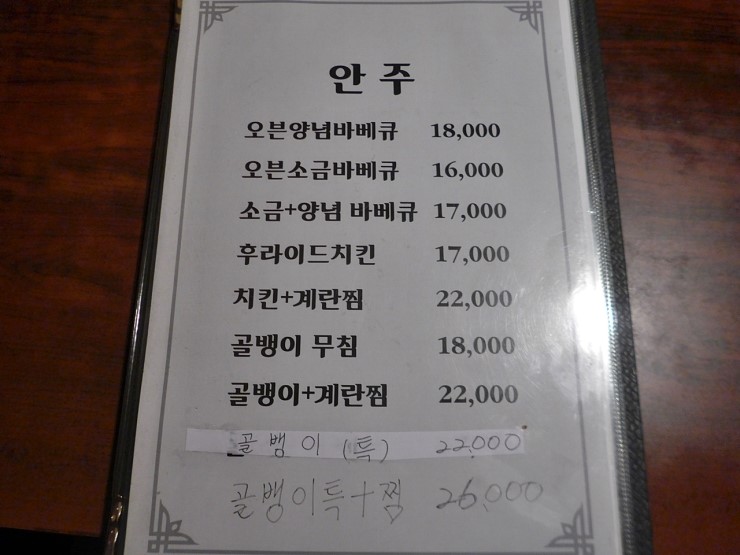 안 주
오븐양념바베큐 18,000
오븐소금바베큐 16,000
소금+양념 바베큐 17,000
후라이드치킨 17,000
치킨+계란찜 22,000
골뱅이 무침 18,000
골뱅이+계란찜 22,000
골뱅이 (특) 22,000
골뱅이특+찜 26,000